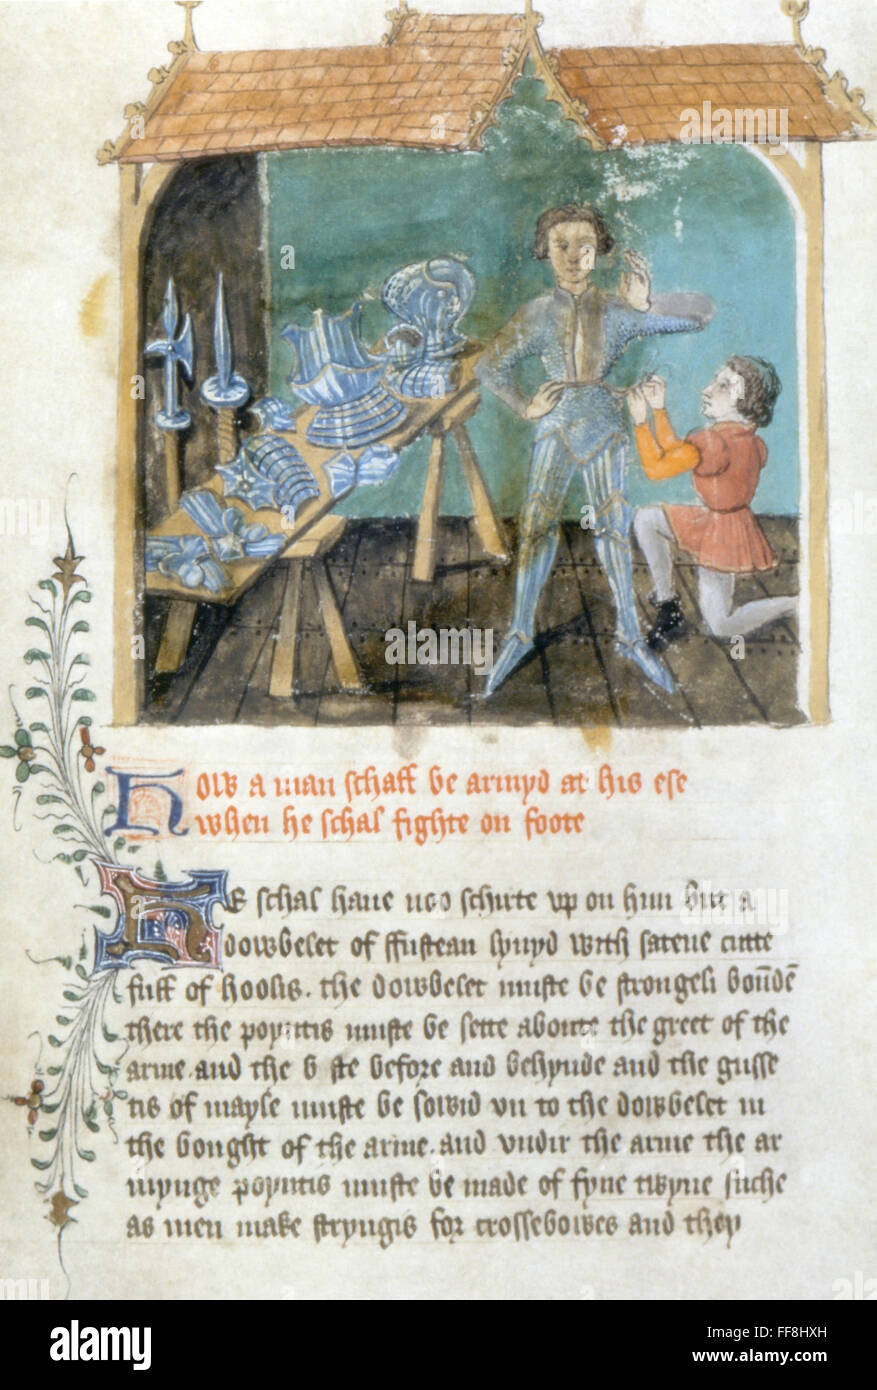 How a man schall be armyd at his ese
when he schal fighte on foote
He schal haue noo schirte up on him but a
dowbelet of ffustean lynyd with satene cutte
full of hoolis. the dowbelet muste be strongeli boūdē
there the poyntis muste be sette aboute the greet of the
arme. and the b ste before and behynde and the gusse
tis of mayle muste be sowid un to the dowbelet in
the bought of the arme. and undir the arme the ar
mynge poyntis muste be made of fyne twyne suche
as men make stryngis for crossebowes and they
alamy
alamy
Image ID: FF8HXH
www.alamy.com